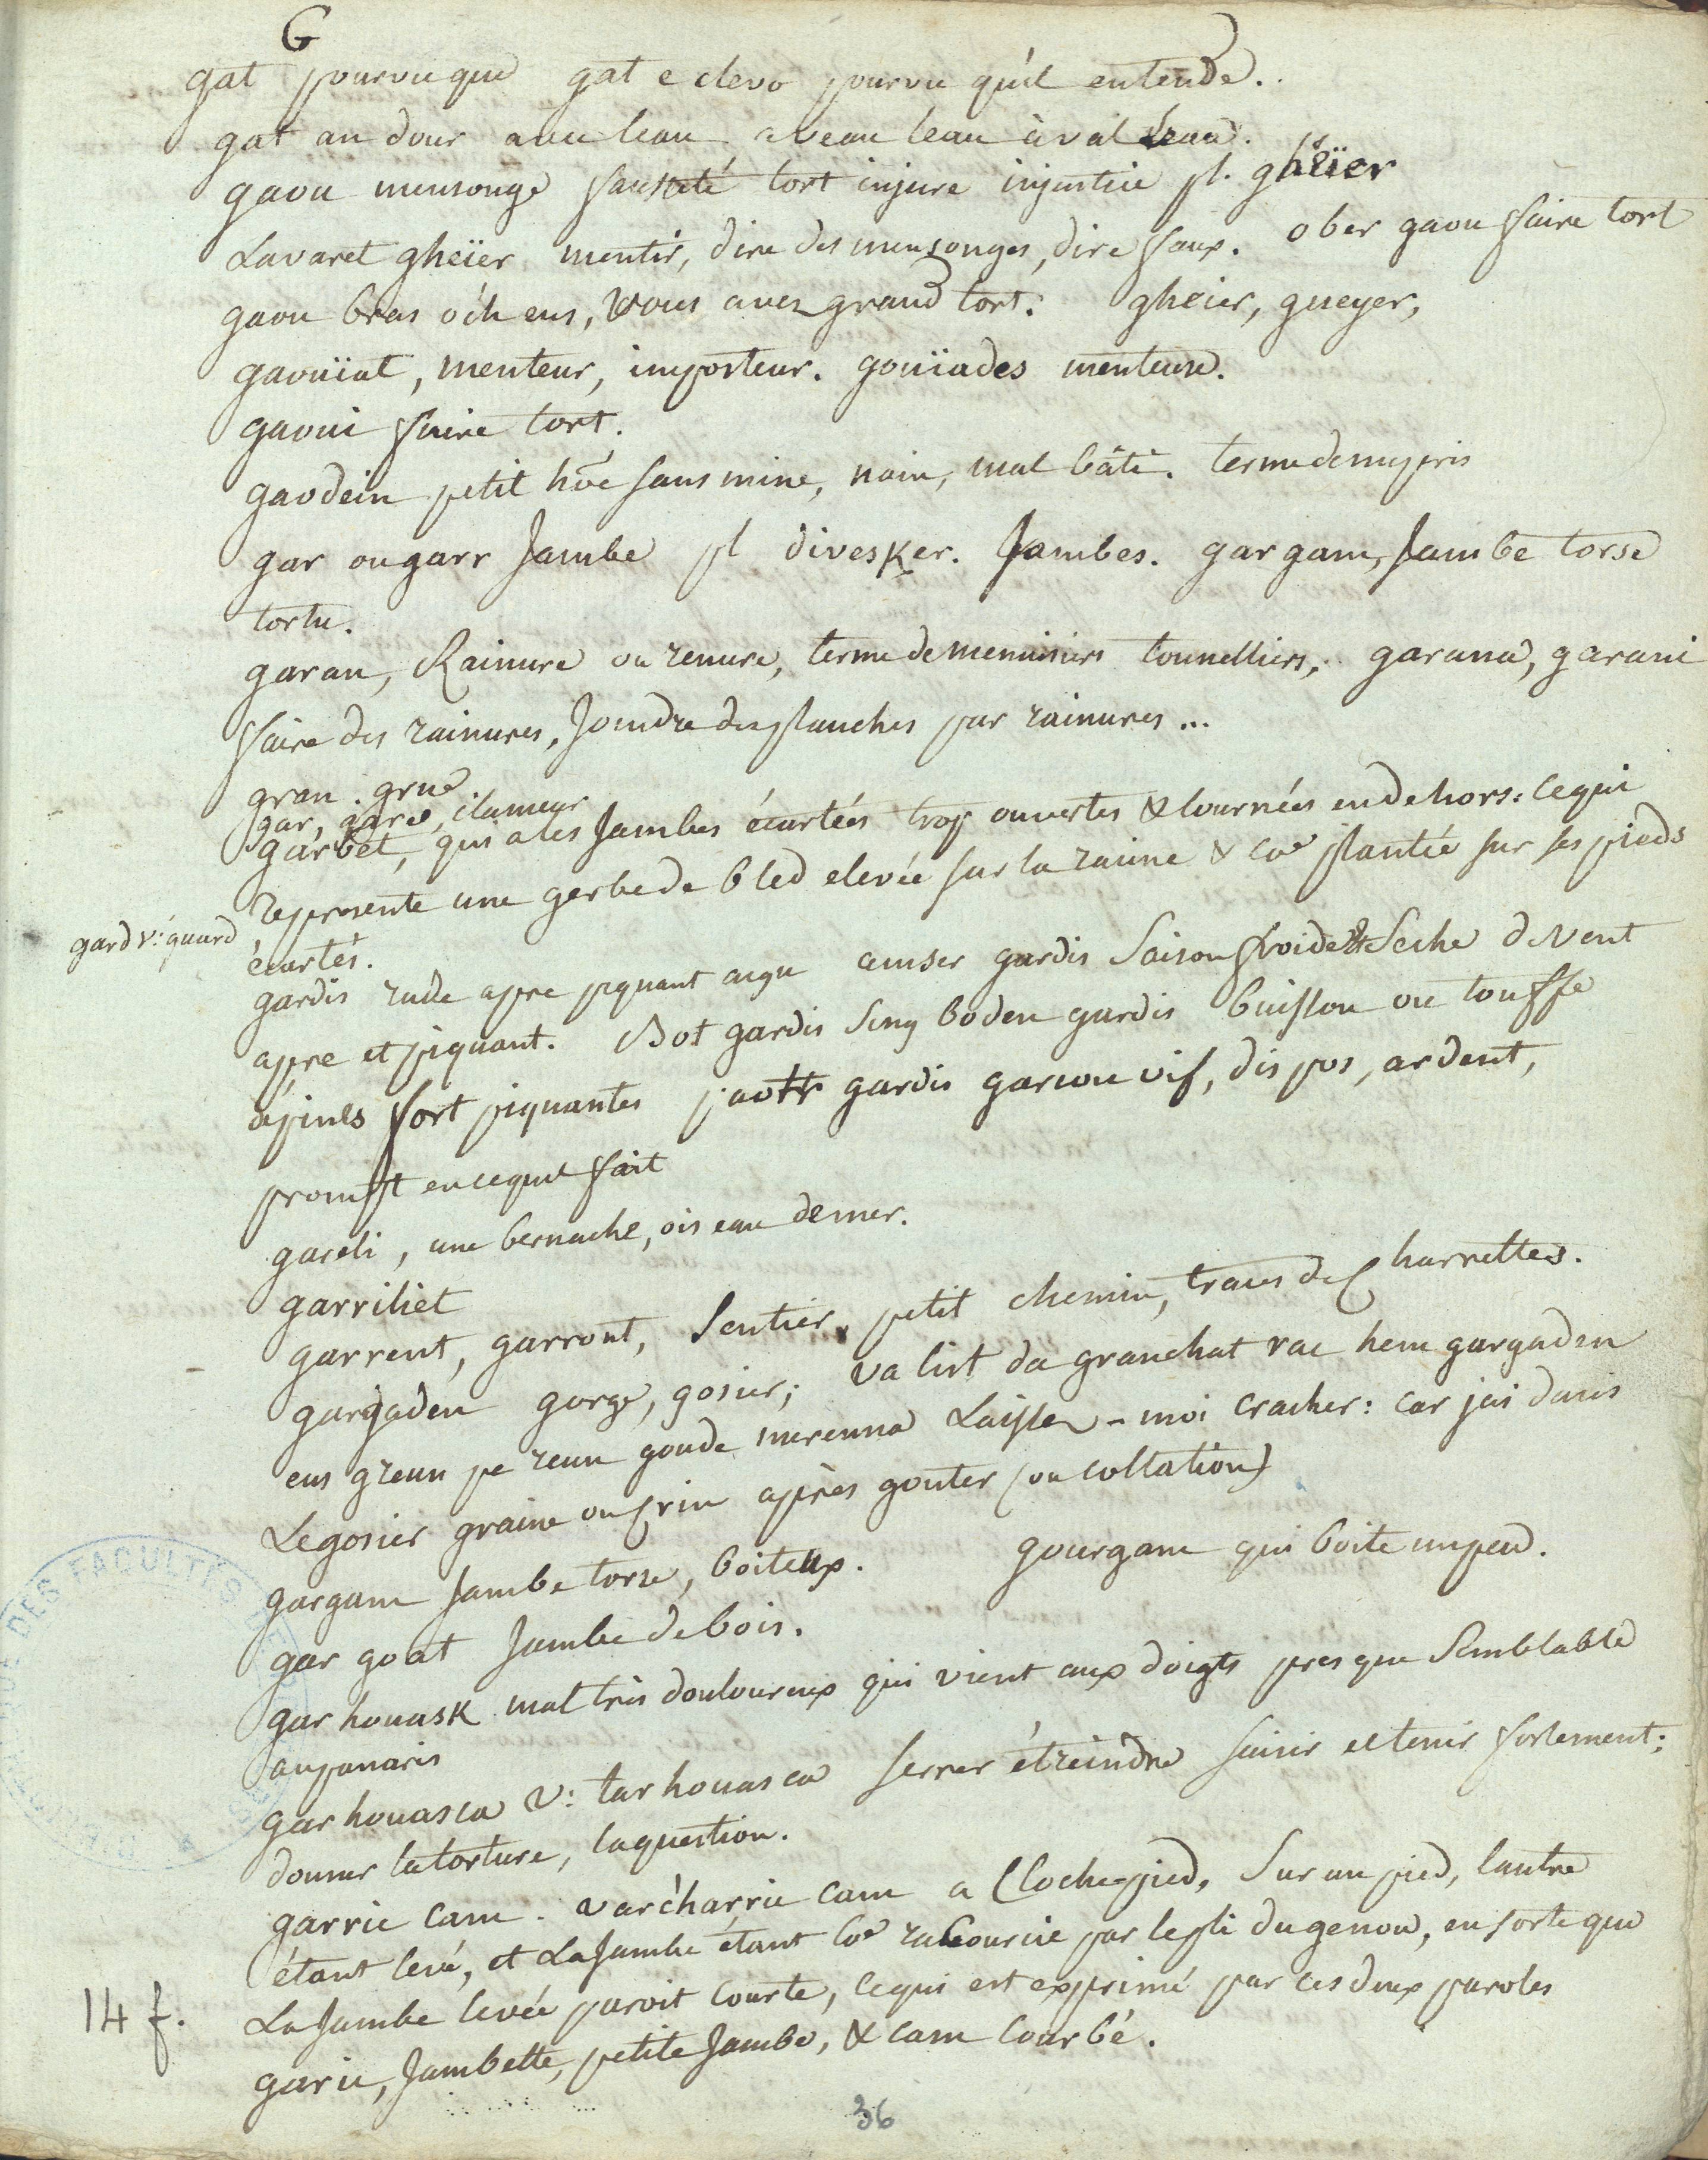 G
gat pourvuque gat e clevo pourvu qu'il entende.
gat an dour avec leau aveau leau à val leau.
gaou mensonge fausteté tort injure injustice pl. gheïer
Lavaret gheïer mentir, dire des mensonges, dire faux. ober gaou faire tort
gaou bras o'ch eus, vous avez grand tort. gheier, gueyer,
gaouïat, menteur, imposteur. gouïades menteuse.
gaoui faire tort.
gaodein petit hoe sans mine, nain, mal bâti. terme de mepris
gar ou garr Jambe pl divesker. Jambes. gargam, Jambe torse
tortu.
garan, Rainure ou renure, terme de menuisiers tounelliers, garana, garani
faire des rainures, Joindre des planches par rainures ...
gran. grue
gar, gare, clameur
garbet, qui a les Jambes écartées trop ouvertes & tournées en dehors: ce qui
represente une gerbe de bled elevée sur la racine & coe plantée sur ses pieds
gard v: guard
écartés.
gardis rude apre piquant aigu amser gardis Saison froide & Seche d vent
apre et piquant. Bot gardis Seny boden gardis buisson ou touffe
depines fort piquantes paotr gardis garcon vif, dispos, ardent,
prompt en cequil fait
gareli, une bernache, oiseau de mer.
garriliet
garrent, garront, Sentier, petit chemin, traces de Charrettes.
gargaden gorge, gosier; va list da granchat rac hem gargaden
eus greun pe reun goude merenna Laissez-moi cracher: car jai dans
Le gosier graine ou Crin après gouter (ou collation)
gargam Jambe torse, boiteux. gourgam qui boite un peu.
gar goat Jambe de bois.
garhouask mal très douloureux qui vient aux doigts presque Semblable
au panaris
garhouasca v: tarhouasca serrer étreindre saisir et tenir fortement;
donner la torture, la question.
garric cam. var'charric cam a Cloche-pied, Sur un pied, lautre
étant levé, et La Jambe étant coe racourcie par le pli du genou, en sorte que
La Jambe levée paroit courte, ce qui est exprimé par ces deux paroles
garic, Jambette, petite Jambe, & cam courbé.
14 f.
36